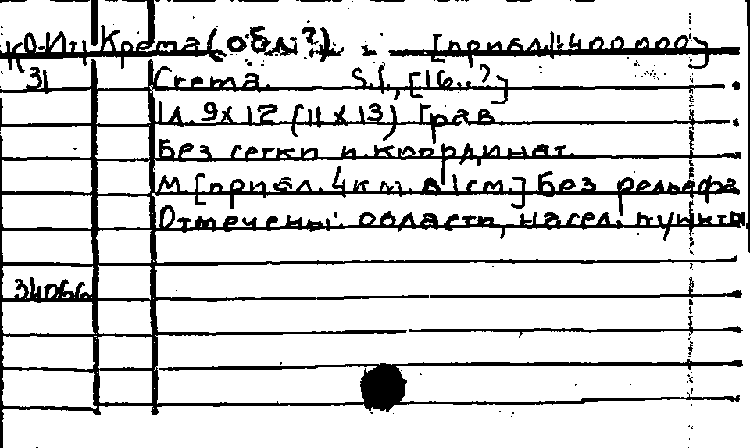 КО-Ит Крема (обл.?). - [прибл.] 1:400 000]
31 Crema. S.l., [16..?]
1 л. 9х12 (11х13) Грав.
Без сетки и координат.
М. [прибл. 4 км. в 1 см.] Без рельефа
Отмечены: области, насел. пункты,
34066